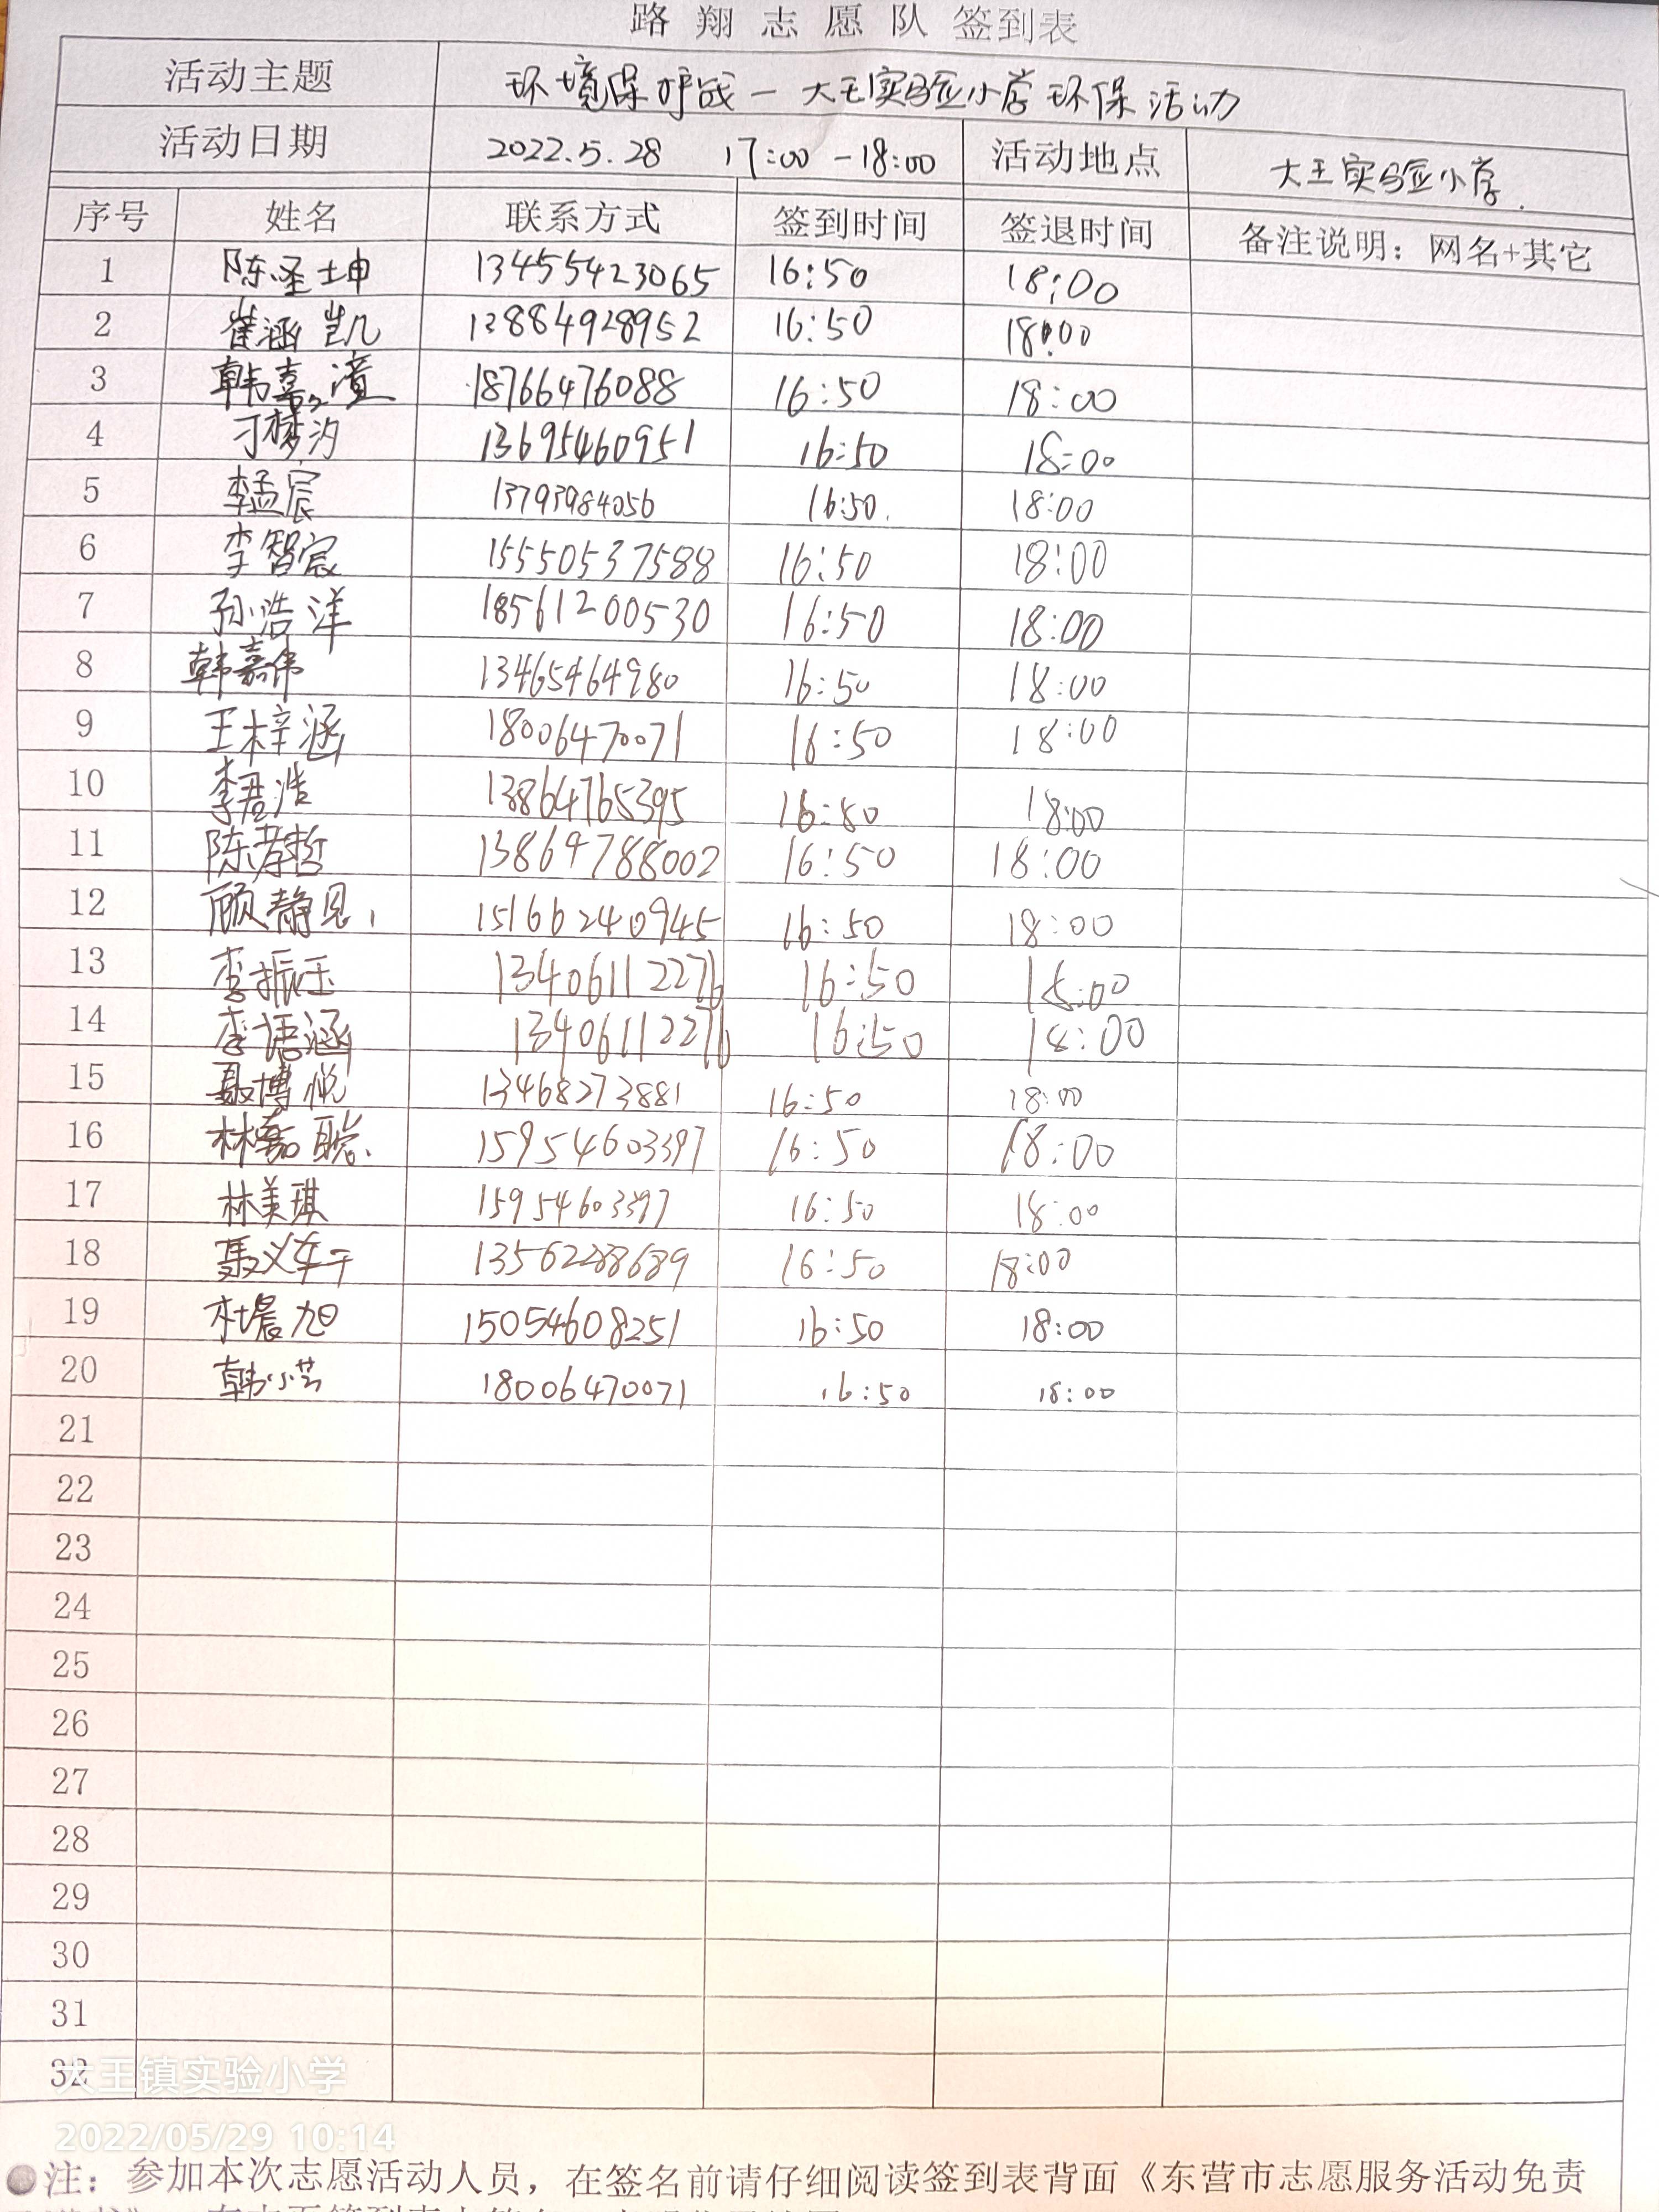 路翔志愿队签到表
活动主题 环境保护战一大王实验小学环保活动
活动日期 2022.5.28 17:00-18:00 活动地点 大王实验小学.
序号 姓名 联系方式 签到时间 签退时间 备注说明：网名+其它
1 陈圣坤 13455423065 16:50 18:00
2 崔涵凯 13884928952 16:50 18:00
3 韩嘉 18766476088 16:50 18:00
4 刁梦汐 13695460951 16:50 18:00
5 李孟宸 13793984056 16:50. 18:00
6 李智宸 15550537588 16:50 18:00
7 孙浩洋 18561200530 16:50 18:00
8 韩嘉伟 13465464980 16:50 18:00
9 王梓涵 18006470071 16:50 18:00
10 李君浩 13864765395 16:50 18:00
11 陈孝哲 13864788002 16:50 18:00
12 顾静恩 15166240945 16:50 18:00
13 李振玉 13406112276 16:50 18:00
14 李语涵 13406112276 16:50 18:00
15 聂博悦 13468273881 16:50 18:00
16 林嘉聪 15954603397 16:50 18:00
17 林美琪 15954603397 16:50 18:00
18 聂义 13562288689 16:50 18:00
19 杜晨旭 15054608251 16:50 18:00
20 韩小芸 18006470071 16:50 18:00
21
22
23
24
25
26
27
28
29
30
31
32
大王镇实验小学
2022/05/29 10:14
●注：参加本次志愿活动人员，在签名前请仔细阅读签到表背面《东营市志愿服务活动免责